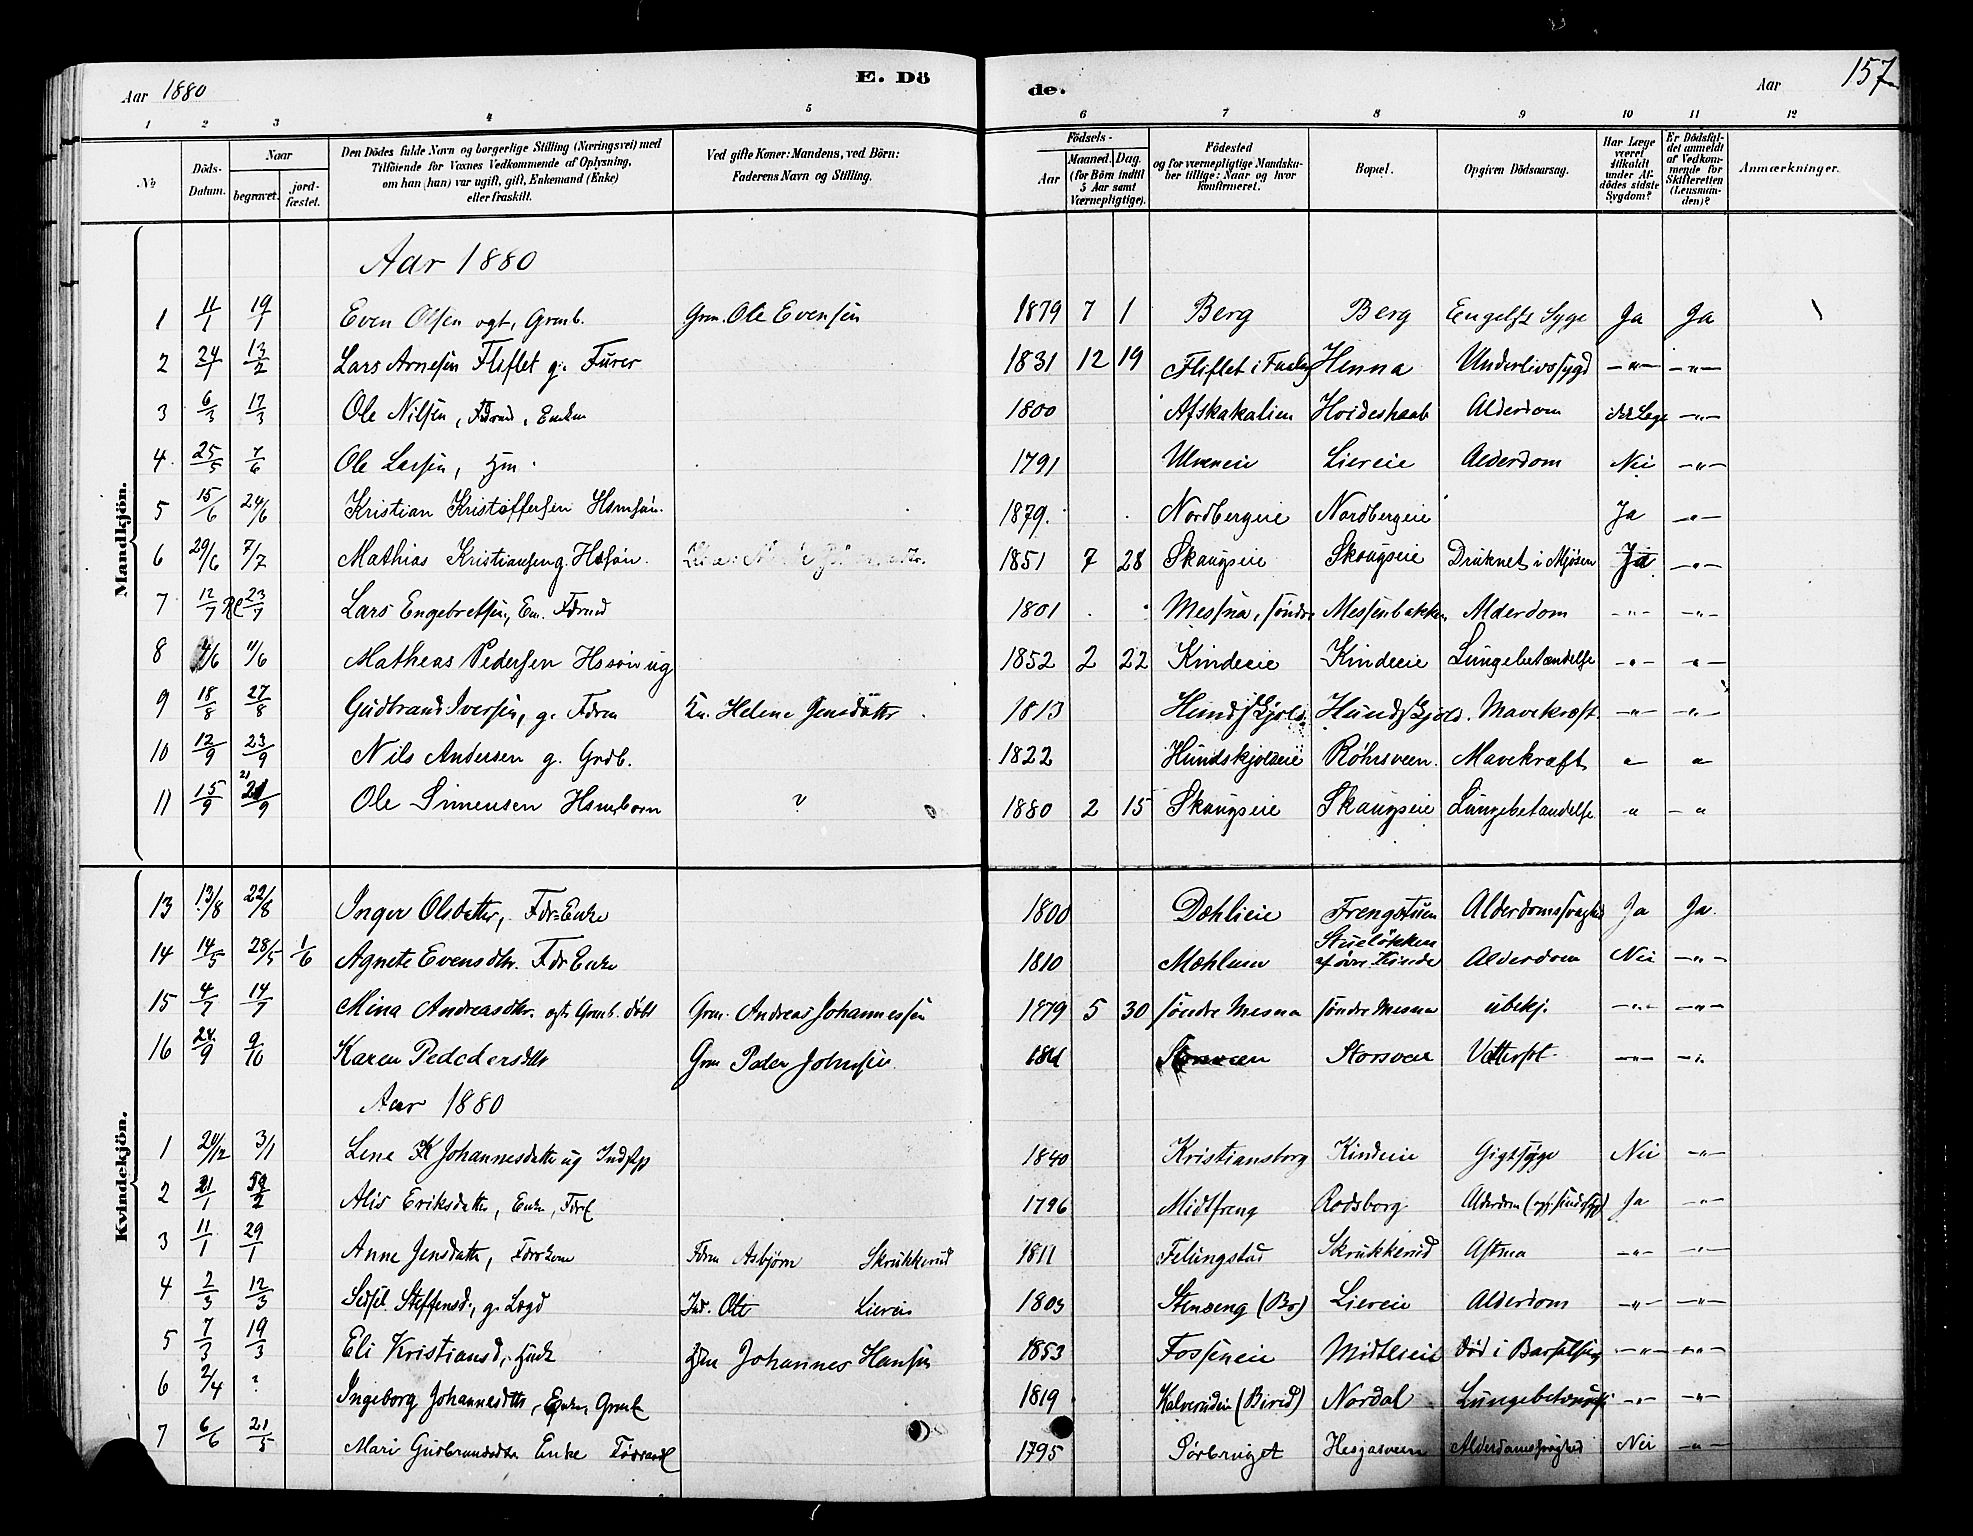 Aar 1880 E. Dö de. Aar 157
1 2 3 4 5 6 7 8 9 10 11 12
№ Döds-Datum. Naar begravet. jord-fæstet. Den Dödes fulde Navn og borgerlige Stilling (Næringsvei) med Tilföiende for Voxnes Vedkommende af Oplysning, om hun (han) var ugift, gift, Enkemand (Enke) eller fraskilt. Ved gifte Koner: Mandens, ved Börn: Faderens Navn og Stilling. Födsels- Aar Maaned. Dag. (for Börn indtil 5 Aar samt Værnepligtige). Födested og for værnepligtige Mandskaber tillige: Naar og hvor konfirmeret. Bopæl. Opgiven Dödsaarsag. Har Læge været tilkaldt under Afdödes sidste Sygdom? Er Dödsfaldet anmeldt af Vedkommende for Skifteretten (Lensmanden)? Anmærkninger.
Mandkjön.
Aar 1880
1 11/1 19/1 Even Olsen ogt, Grmb. Grm. Ole Evensen 1879 7 1 Berg Berg Engelsk Syge Ja Ja
2 24/1 13/2 Lars Arnesen Fliflet g. Furer 1831 12 19 Fliflet i Faaberg Henna Underlivssygd -"- -"-
3 6/3 17/3 Ole Nilsen, Fdrmd, Enkem 1800 Afskakalien Hvideshaab Alderdom -"-
4 25/5 7/6 Ole Larsen, 1791 Ulveneie Liereie Alderdom Nei -"-
5 15/6 24/6 Kristian Kristoffersen Hsmsøn. 1879. Nordbergeie Nordbergeie Ja -"-
6 29/6 7/7 Mathias Kristiansen g. Hssøn. 1851 7 28 Skaugseie Skaugseie Druknet i Mjøsen Ja -"-
7 12/7 23/7 Lars Engebretsen, Em. Fdrmd 1801 Messna, søndre Messenbakken Alderdom -"- -"-
8 4/6 11/6 Matheas Pedersen Hssøn ug 1852 2 22 Kindeeie Kindeeie Lungebetændelse -"- -"-
9 18/8 27/8 Gudbrand Iversen, g. Fdrm Kn. Helene Jensdatter 1813 Hundskjold. Hundskjold. Mavekræft. -"- -"-
10 12/9 23/9 Nils Andersen g. Grdb. 1822 Hundskjoldeie Röhrsveen. Mavekræft " "
11 15/9 21/9 Ole Simensen Hsmbarn " 1880 2 15 Skaugseie Skaugseie Lungebetændelse " "
Kvindekjön.
13 13/8 22/8 Inger Olsdatter, Fdr-Enke 1800 Dæhlieie Frengstuen Alderdomssvaghed Ja Ja.
14 14/5 28/5 1/6 Agnete Evensdtr. Fdr Enke 1810 Mæhlum Stueløkken af øvre Kinde Alderdom Nei -"-
15 4/7 14/7 Mina Andreasdtr. ogt Grmb. døbt Grm. Andreas Johannessen 1879 5 30 søndre Mesna søndre Mesna ubekj. -"- -"-
16 24/9 9/10 Karen Pededersdtr Grm Peder Johnsen Storsveen -"- -"-
Aar 1880
1 20/12 3/1 Lene K Johannesdatter ug Indstp 1840 Kristiansborg Kindeeie Gigtsyge Nei -"-
2 21/1 Alis Eriksdatter, Enke, Fdrk 1796 Midtfreng Rodsborg Alderdom Ja -"-
3 11/1 29/1 Anne Jensdatter, Fdrkone Fdrm Asbjørn Skrukkerud 1811 Felungstad Skrukkerud Astma -"- -"-
4 2/3 12/3 Sidsel Steffensd., g. Lægd Ind. Ole Liereie 1803 Stenseng (Bø) Liereie Alderdom -"- -"-
5 7/3 19/3 Eli Kristiansd., Johannes Hansen 1853 Fosseneie Midtlieie Død i Barselseng -"- -"-
6 2/4 ? Ingeborg Johannesdtr, Enke, Grmk 1819 Kalverudeie (Birid) Nordal Lungebetændelse -"- -"-
7 6/6 21/5 Mari Gudbrandsdtr. Enke 1795 Sørbryget Hesjasveen Alderdomssvaghed Nei -"-